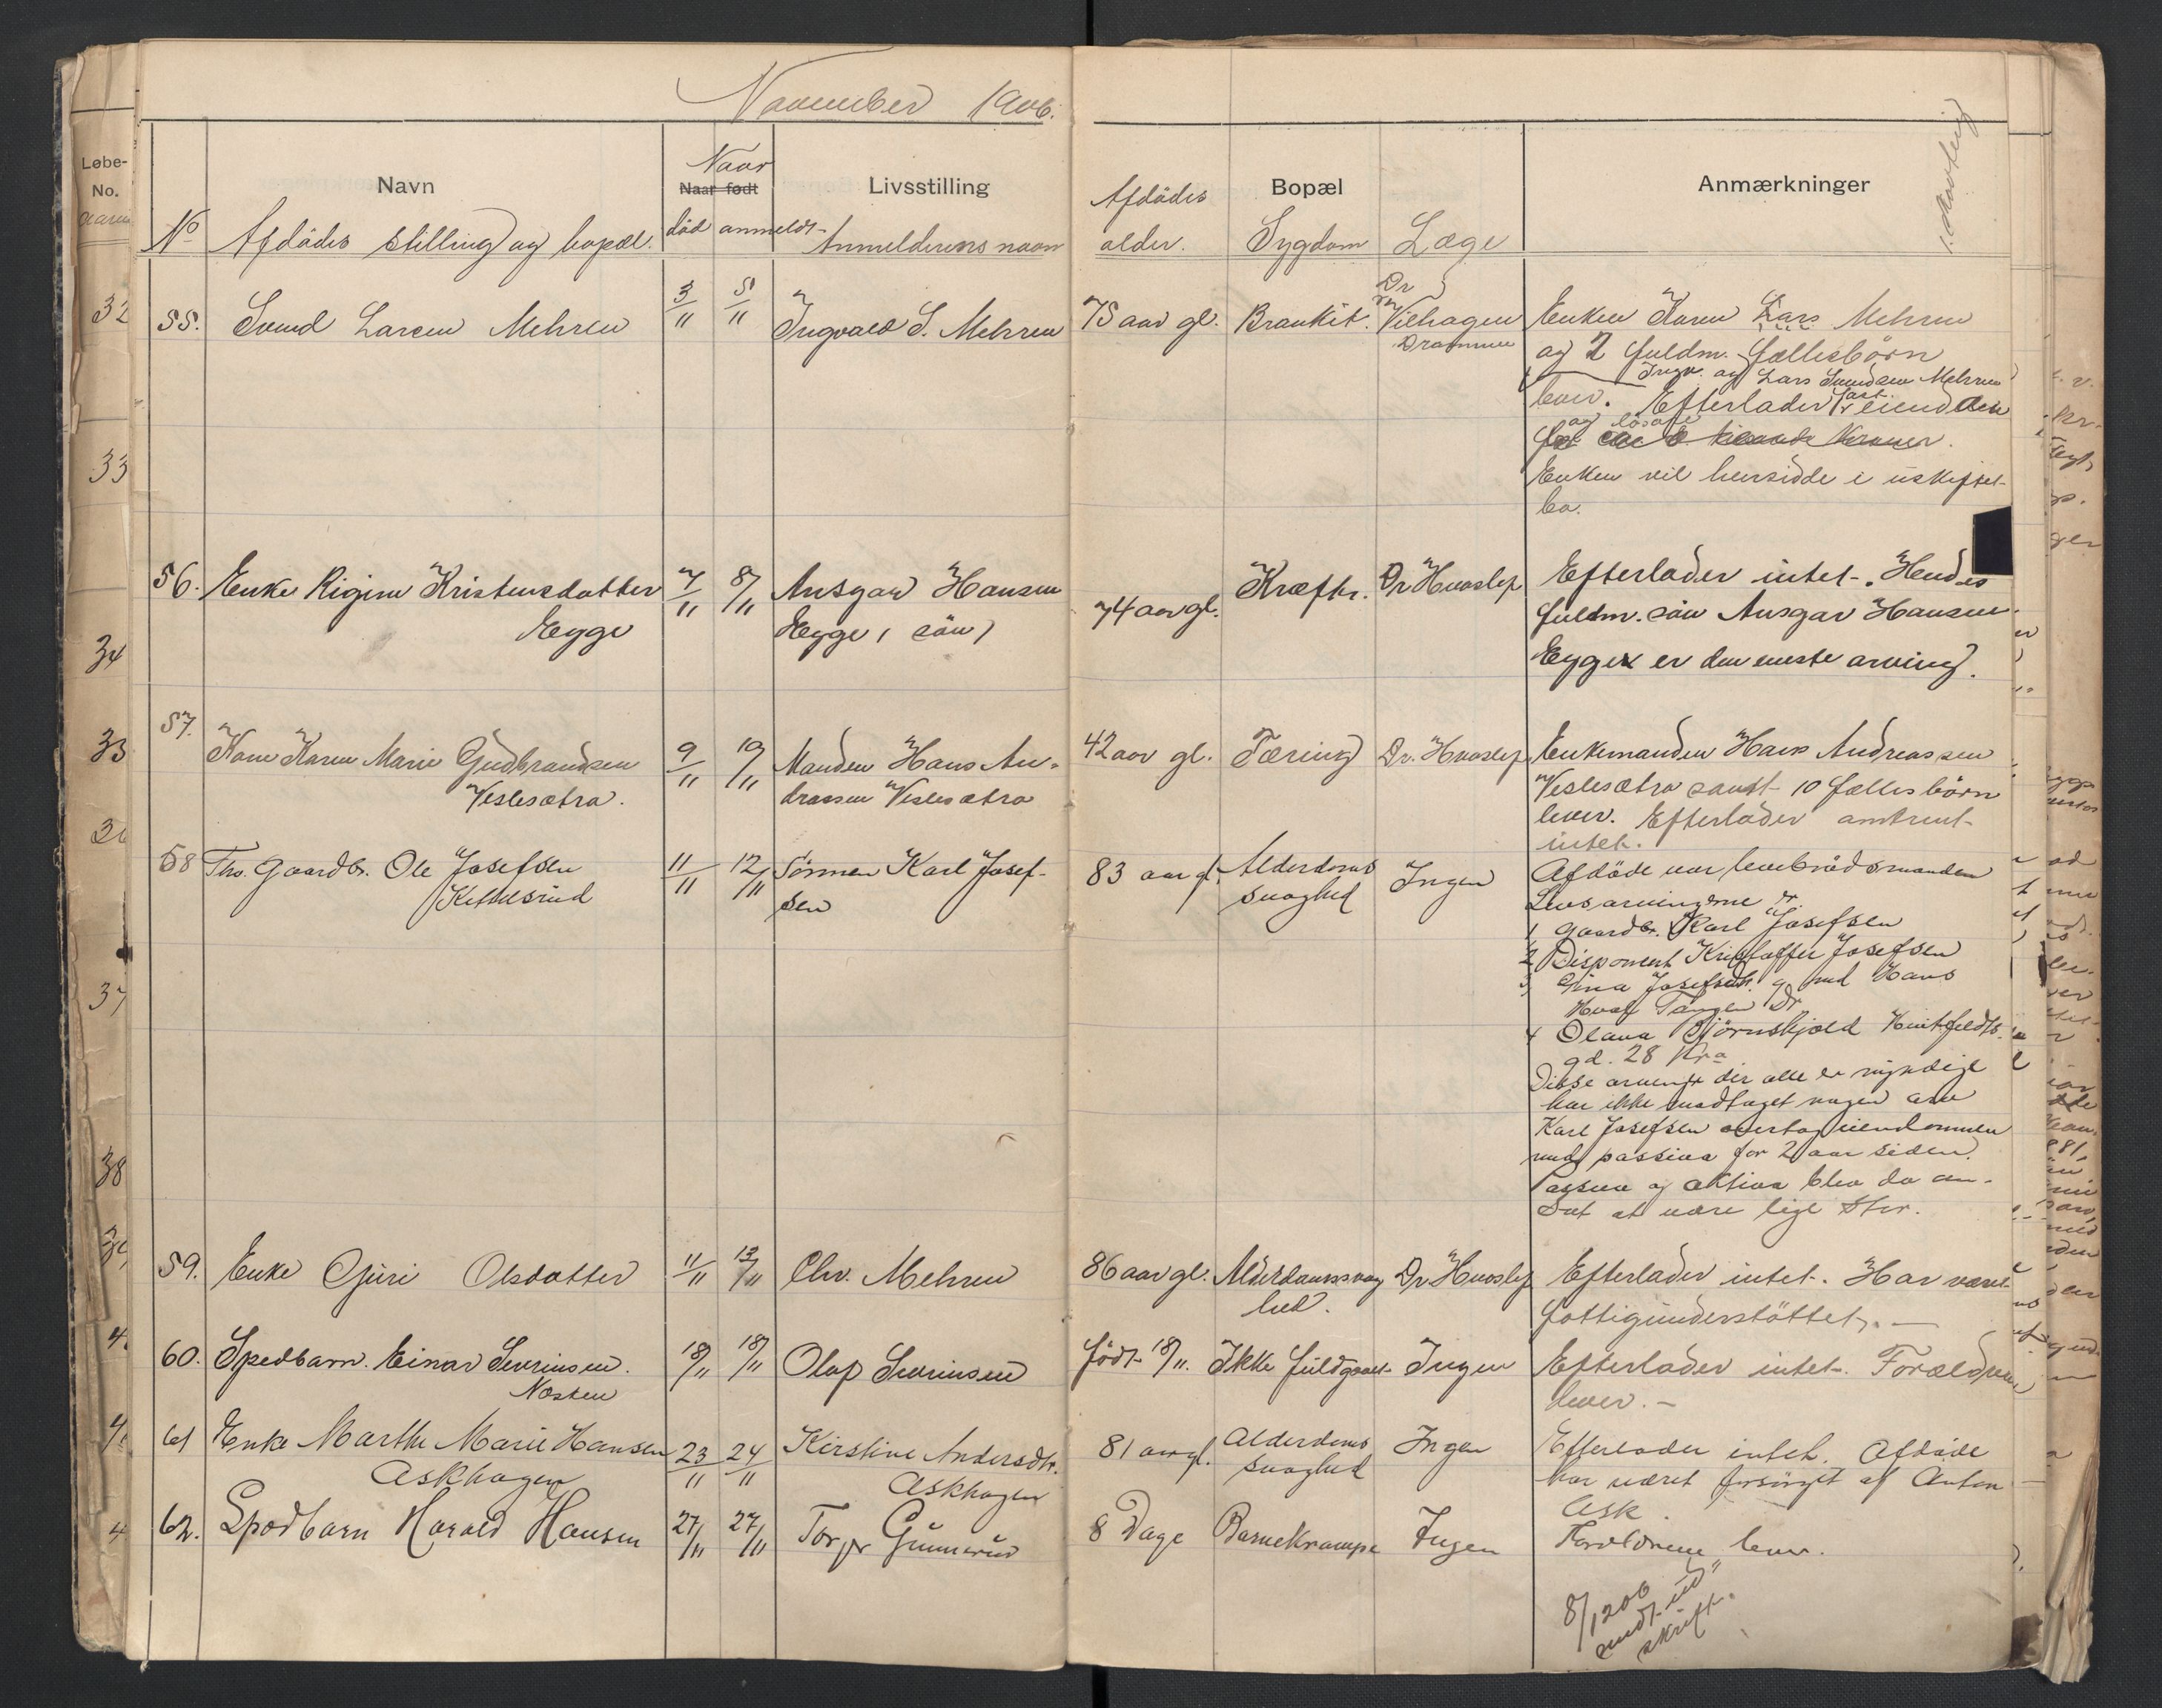 November 1906.
Løbe-
No.
Navn
Naar
Naar født
Livsstilling
Afdödes
alder.
Bopæl
Anmærkninger
No
Afdödes stilling og bopæl.
död anmeldt
Anmelderens navn
Sygdom
Læge
32
33
34
35
36
37
38
39
55. Svend Larsen Mehren 3/11 5/11 Ingvald S. Mehren 75 aar gl. Bronkit. Dr Vilhagen
Drammen
Enken Karen Lars Mehren
og 2 fuldm. fællesbörn
Ingv. og Lars Svendsen Mehren
lever. Efterlader fast eiendom
og lösöre
Kroner.
Enken vil hensidde i uskiftet
bo.
56. Enke Rigine Kristensdatter 7/11 8/11 Ansgar Hansen 74 aar gl. Kræft. Dr Hvoslef
Egge
Egge (sön)
Efterlader intet. Hendes
fuldm. sön Ansgar Hansen
Egge er den eneste arving.
57. Kone Karen Marie Gudbrandsen 9/11 10/11 Manden Hans An-
Veslesætra.
dreassen Veslesætra
42 aar gl. Tæring Dr. Hvoslef
Enkemanden Hans Andreassen
Veslesætra samt 10 fælles börn
lever. Efterlader omtrent
intet.
58 Fhv. Gaardbr. Ole Josefsen 11/11 12/11 Sönnen Karl Josef-
Kittelsrud
sen
83 aar gl. Alderdoms
svaghed
Ingen
Afdöde var levebrödsmanden
Livsarvingerne er
1 gaardbr. Karl Josefsen
2 Disponent Kristoffer Josefsen
3 Gina Josefsdt. g. med Hans
Hvalf Tangen Dr
4 Olava Björnskjold Huitfeldts
gd. 28 Kra
Disse arvinger der alle er myndige
har ikke modtaget nogen arv
Karl Josefsen overtog eiendommen
med passiva for 2 aar siden.
Passiva og aktiva blev da an-
sat at være lige stor.
59. Enke Guri Olsdatter 11/11 13/11 Chr. Mehren 86 aar gl. Alderdomssvag
hed.
Dr. Hvoslef
Efterlader intet. Har været
fattigunderstöttet. —
60. Spedbarn Einar Severinsen. 18/11 18/11 Olaf Severinsen født 18/11. Ikke fuldgaaet Ingen
Næsten
Efterlader intet. Forældrene
lever. —
61 Enke Marthe Marie Hansen 23/11 24/11 Kirstine Andersdtr. 81 aar gl. Alderdoms
Askhagen
Askhagen
svaghed
Ingen
Efterlader intet. Afdöde
har været forsörget af Anton
Ask.
62. Spædbarn Harald Hansen 27/11 27/11 Torger Gunnerud 8 Dage Barnekrampe Ingen
Forældrene lever.
8/12 06
sendt ud
skrift.